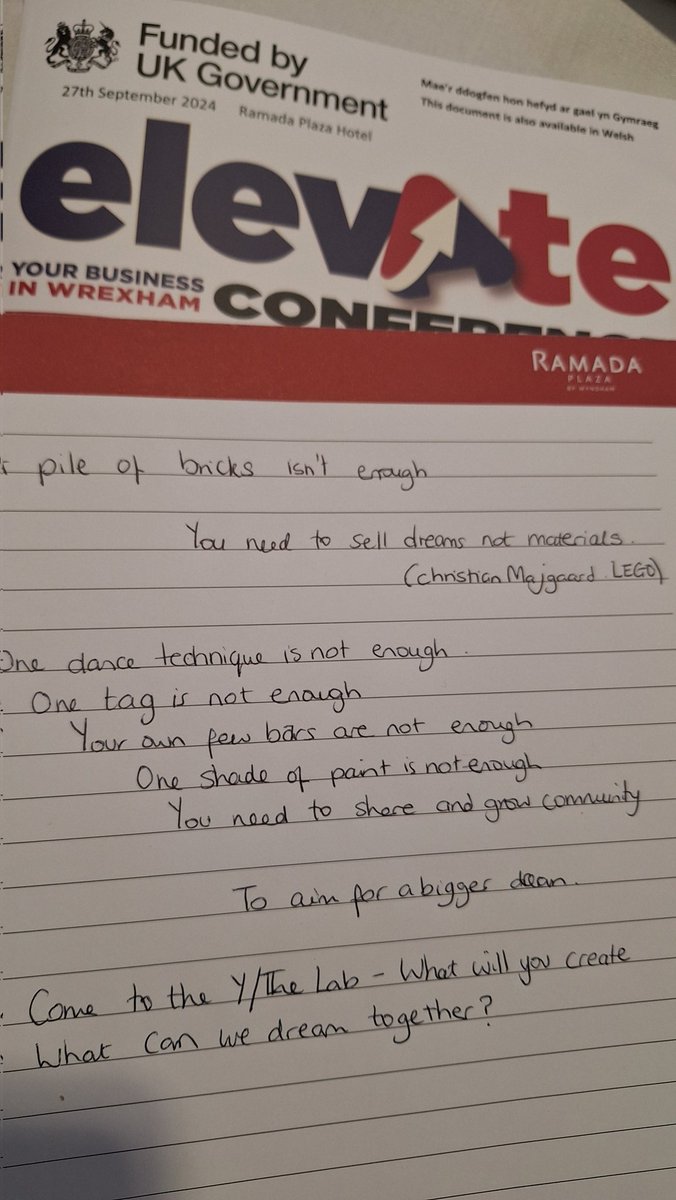 Funded by
UK Government
27th September 2024 Ramada Plaza Hotel
Mae'r ddogfen hon hefyd ar gael yn Gymraeg
This document is also available in Welsh
elevate
YOUR BUSINESS
IN WREXHAM
CONFERENC
RAMADA
PLAZA
BY WYNDHAM
pile of bricks isn't enough
You need to sell dreams not materials.
(Christian Majgaard LEGO)
One dance technique is not enough.
One tag is not enough
Your own few bars are not enough
One shade of paint is not enough
You need to share and grow community
To aim for a bigger dream.
Come to the Y/The Lab - What will you create
What can we dream together?